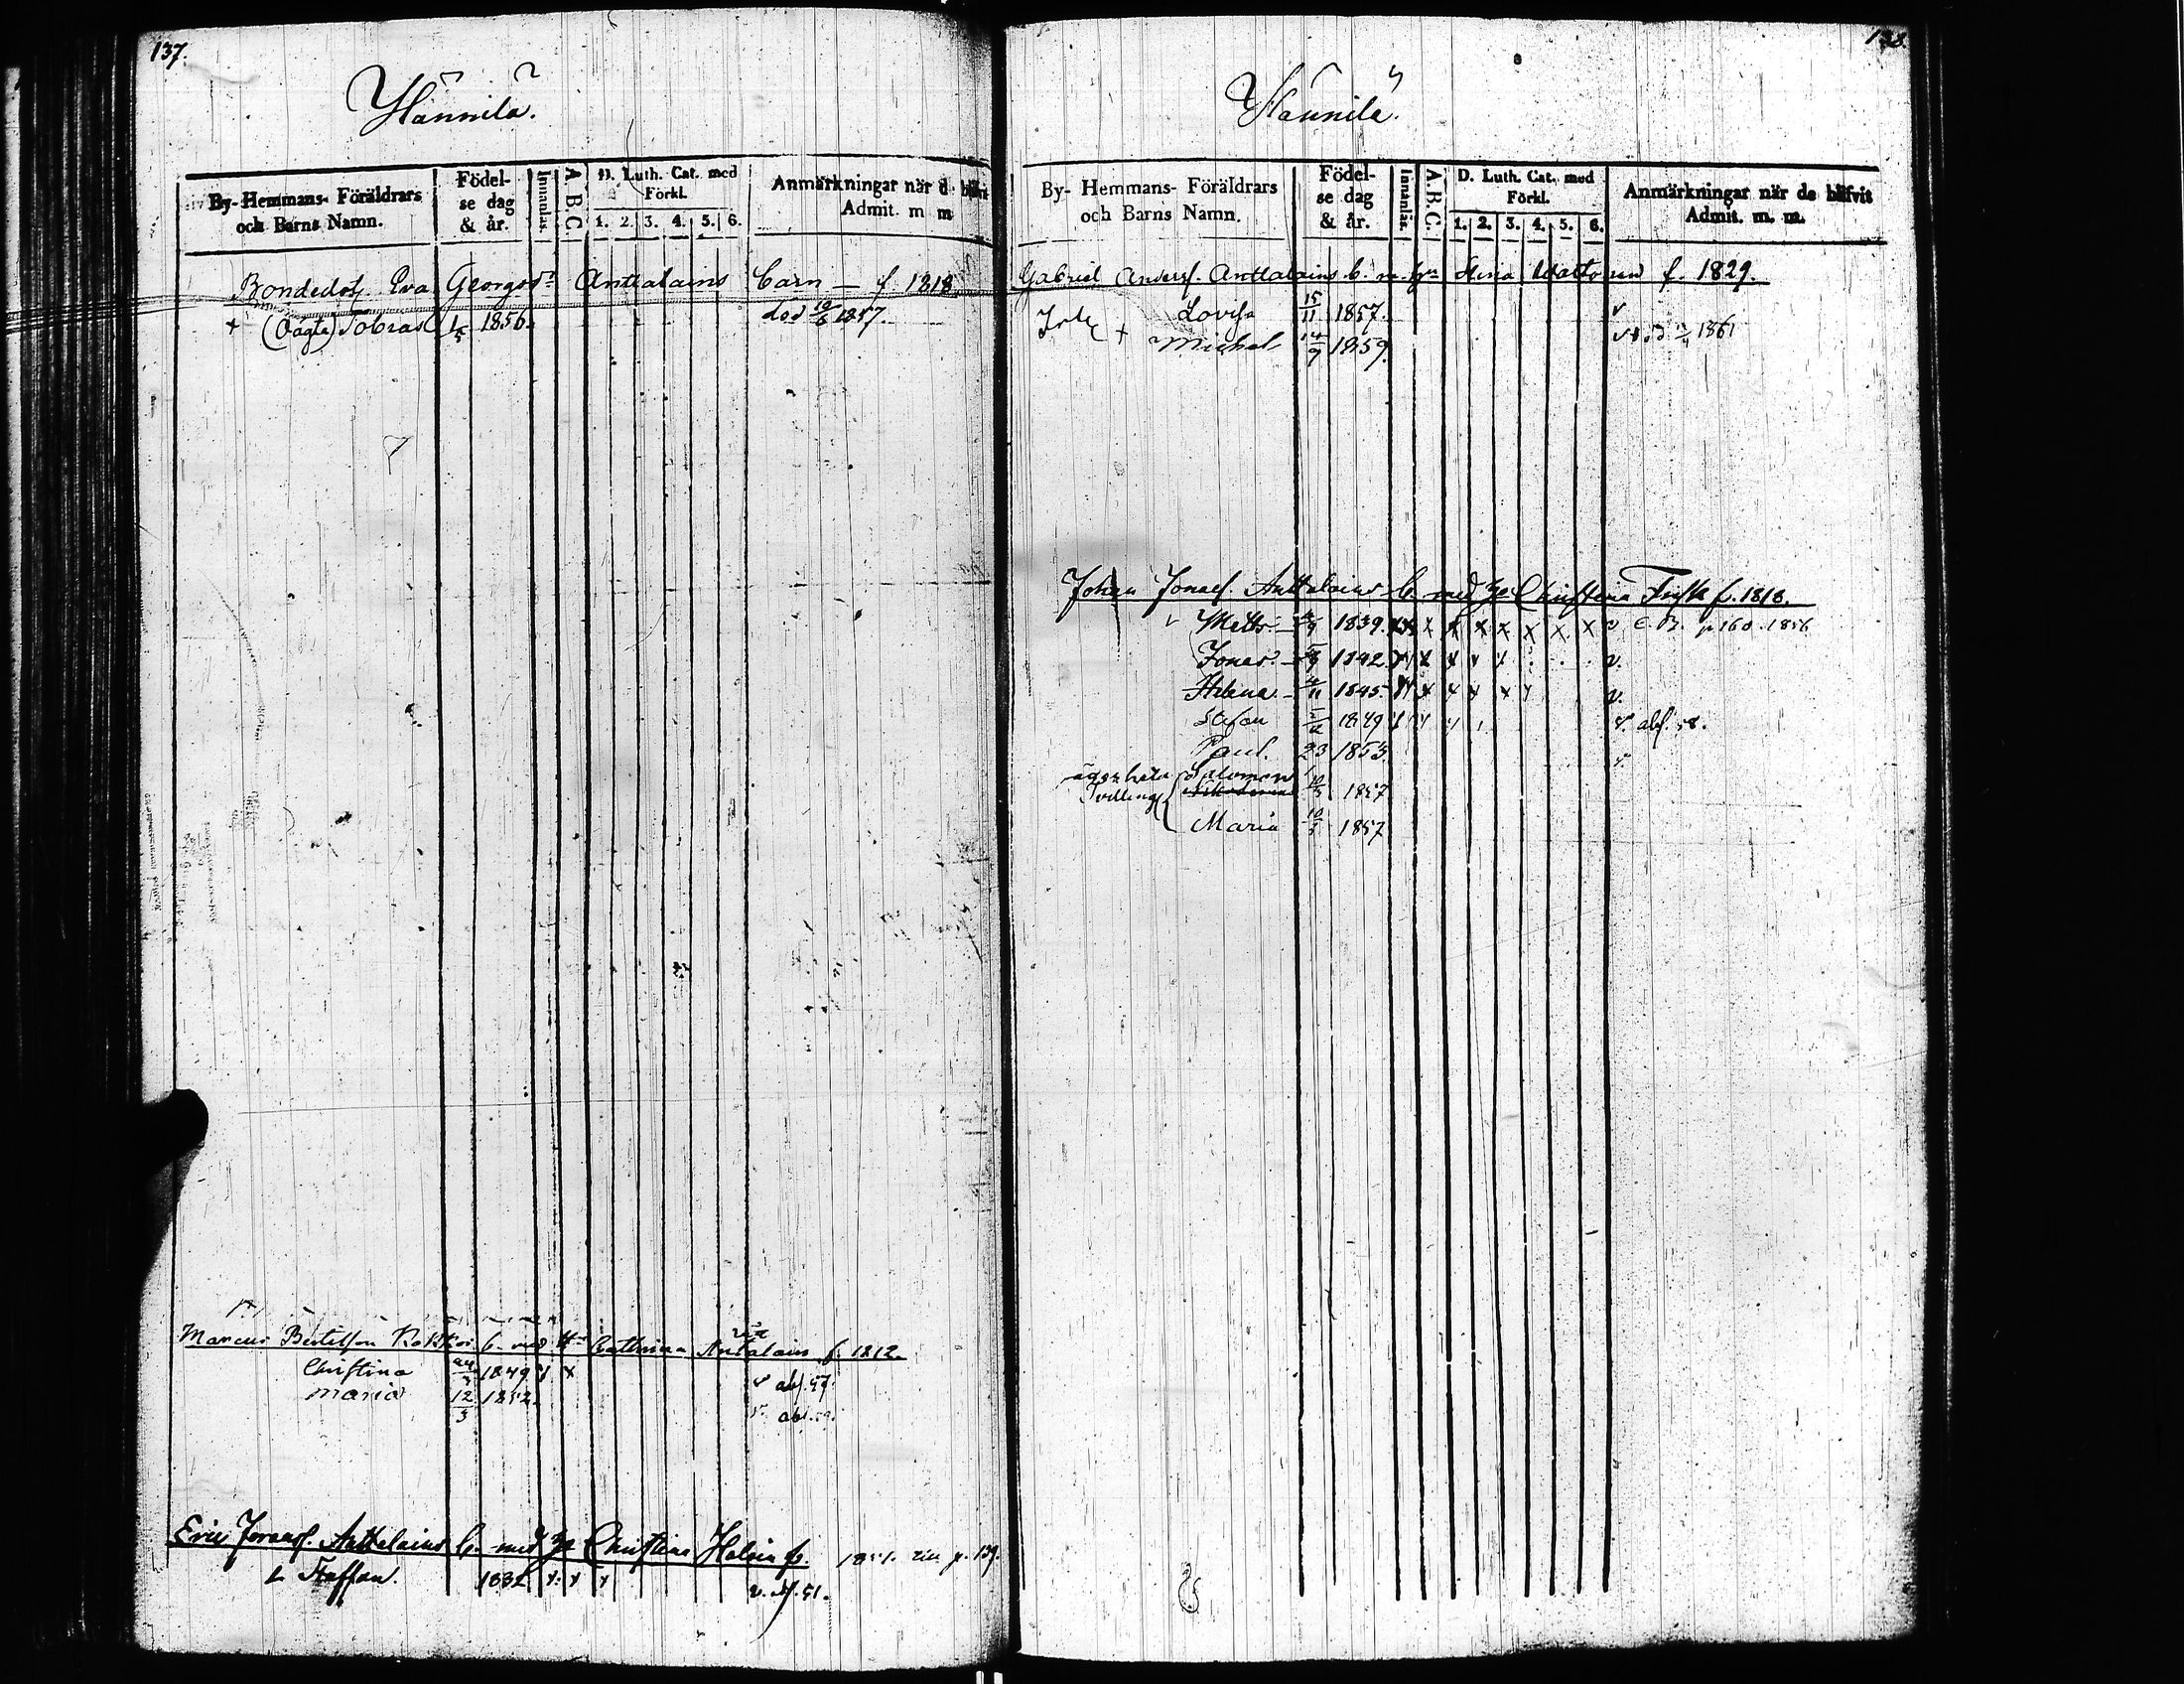 137.
Hännilä.
By-Hemmans- Föräldrars och Barns Namn.
Födelse dag & år.
Innanläs.
A.B.C.
D. Luth. Cat. med Förkl.
1. 2. 3. 4. 5. 6.
Anmärkningar när d blifvit Admit. m m
Bondedotr. Eva Georgsdr Anttalains barn — f. 1818
+ (Oägta) Tobias 1/5 1856. död 10/6 1857.
Marcus Bertilsson Kokkoi b. med Hu Cathrina Anttalain f. 1812.
Christina 24/3 1849 x x v abs. 57.
Maria 12/3 1852. v. abs.
Eric Jonass. Anttalains b. med h. Christina f. 1851. p. 139.
Staffan. 1832 x x x v. 51.
138.
Hännilä.
By- Hemmans- Föräldrars och Barns Namn.
Födelse dag & år.
Innanläs.
A.B.C.
D. Luth. Cat. med Förkl.
1. 2. 3. 4. 5. 6.
Anmärkningar när de blifvit Admit. m. m.
Gabriel Anders. Anttalains b. m. hu Stina f. 1829.
Lovisa 15/11 1857. v
+ Michel 14/9 1859. v 1861
Johan Jonass. Anttalains b. med h. Christina Frisk f. 1818.
Matts 1839. x x x x x x x x x v E. B. p 160. 1856
Jonas 1842. x x x x x v.
Helena 4/11 1845 x x x x x x v.
Stefan 1849 x x x v. abs. 58.
Paul. 23 1853. v.
Tvilling Salomon 10/3 1857
Maria 10/3 1857